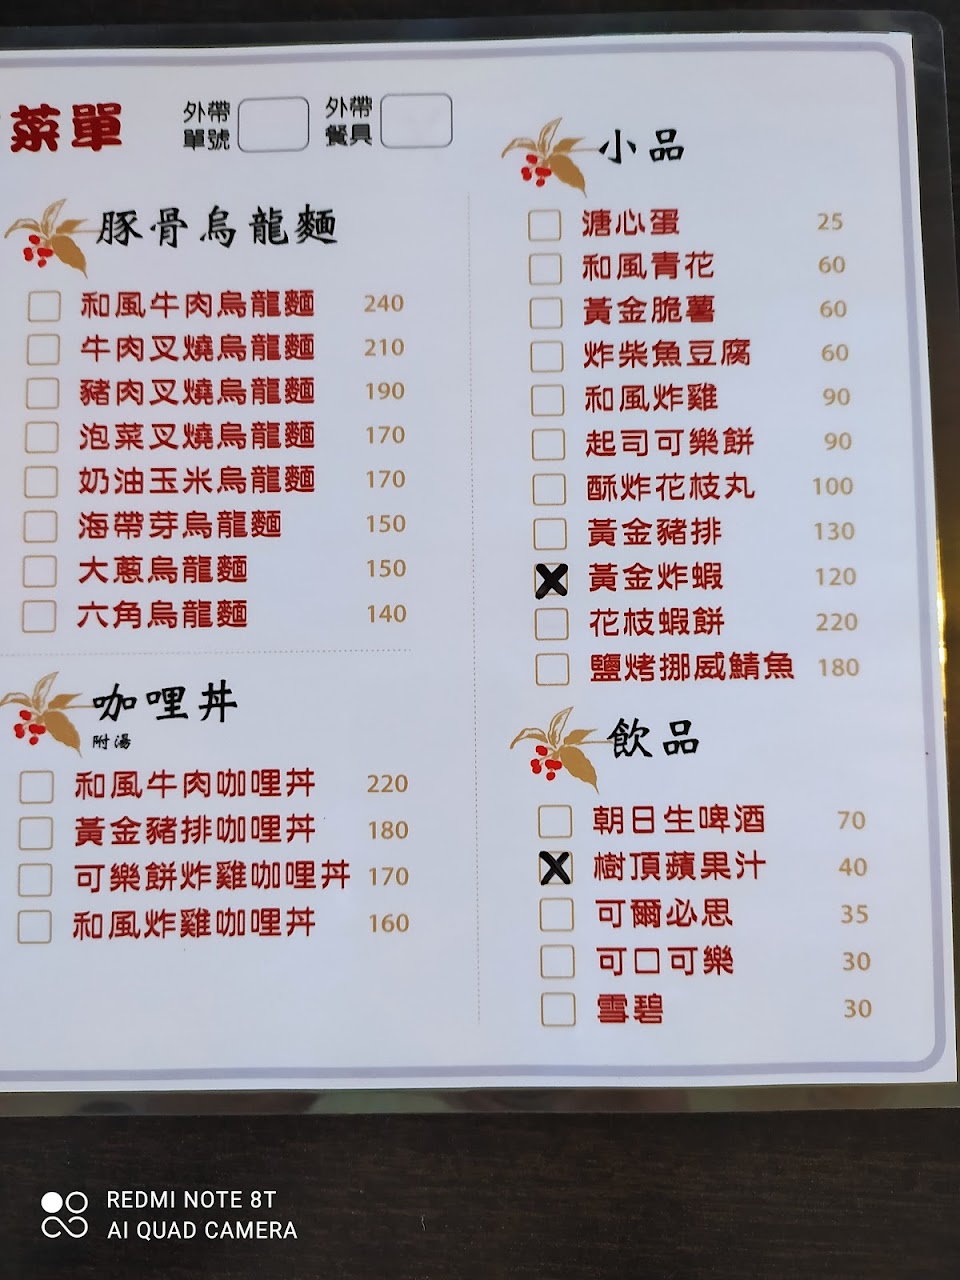 菜單
外帶單號
外帶餐具
豚骨烏龍麵
和風牛肉烏龍麵 240
牛肉叉燒烏龍麵 210
豬肉叉燒烏龍麵 190
泡菜叉燒烏龍麵 170
奶油玉米烏龍麵 170
海帶芽烏龍麵 150
大蔥烏龍麵 150
六角烏龍麵 140
咖哩丼
附湯
和風牛肉咖哩丼 220
黃金豬排咖哩丼 180
可樂餅炸雞咖哩丼 170
和風炸雞咖哩丼 160
小品
溏心蛋 25
和風青花 60
黃金脆薯 60
炸柴魚豆腐 60
和風炸雞 90
起司可樂餅 90
酥炸花枝丸 100
黃金豬排 130
X 黃金炸蝦 120
花枝蝦餅 220
鹽烤挪威鯖魚 180
飲品
朝日生啤酒 70
X 樹頂蘋果汁 40
可爾必思 35
可口可樂 30
雪碧 30
REDMI NOTE 8T
AI QUAD CAMERA